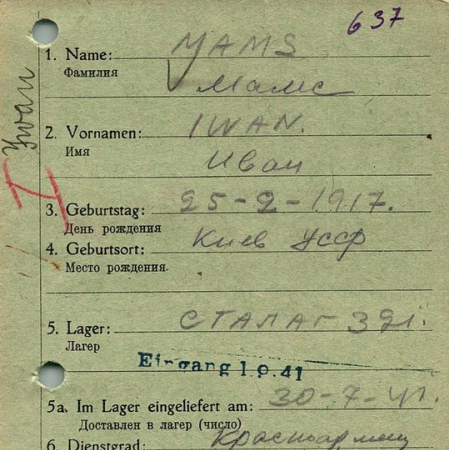 637
1. Name: MAMS
Фамилия
Мамс
2. Vornamen: IWAN.
Имя
Иван
3. Geburtstag: 25-2-1917.
День рождения
4. Geburtsort: Киев УССР
Место рождения.
5. Lager: СТАЛАГ 321.
Лагер
Eingang 1.9.41
5a. Im Lager eingeliefert am: 30-7-41.
Доставлен в лагер (число)
6. Dienstgrad: Красноармеец